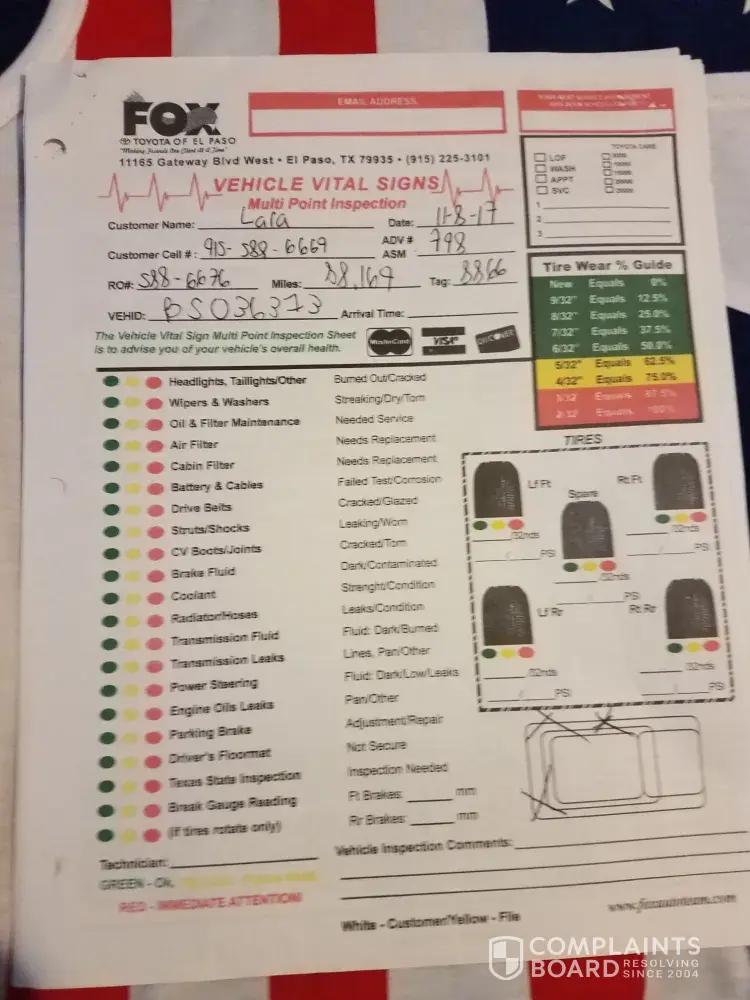 EMAIL ADDRESS
FOX
TOYOTA OF EL PASO
"Making Friends One Client At A Time"
11165 Gateway Blvd West • El Paso, TX 79935 • (915) 225-3101
TOYOTA CARE
LOF
WASH
APPT
SVC
1
2
3
VEHICLE VITAL SIGNS
Multi Point Inspection
Customer Name: Lara Date: 11-8-17
Customer Cell #: 915-588-6669 ADV # ASM 798
RO#: 588-6676 Miles: 88,169 Tag: 8866
VEHID: BS036373 Arrival Time:
The Vehicle Vital Sign Multi Point Inspection Sheet
is to advise you of your vehicle's overall health.
MasterCard VISA DISCOVER
Tire Wear % Guide
New Equals 0%
9/32" Equals 12.5%
8/32" Equals 25.0%
7/32" Equals 37.5%
6/32" Equals 50.0%
5/32" Equals 62.5%
4/32" Equals 75.0%
3/32" Equals 87.5%
2/32" Equals 100%
Headlights, Taillights/Other Burned Out/Cracked
Wipers & Washers Streaking/Dry/Torn
Oil & Filter Maintenance Needed Service
Air Filter Needs Replacement
Cabin Filter Needs Replacement
Battery & Cables Failed Test/Corrosion
Drive Belts Cracked/Glazed
Struts/Shocks Leaking/Worn
CV Boots/Joints Cracked/Torn
Brake Fluid Dark/Contaminated
Coolant Strenght/Condition
Radiator/Hoses Leaks/Condition
Transmission Fluid Fluid: Dark/Burned
Transmission Leaks Lines, Pan/Other
Power Steering Fluid: Dark/Low/Leaks
Engine Oils Leaks Pan/Other
Parking Brake Adjustment/Repair
Driver's Floormat Not Secure
Texas State Inspection Inspection Needed
Break Gauge Reading Ft Brakes: mm
(if tires rotate only!) Rr Brakes: mm
TIRES
Lf Ft Spare Rt Ft
/32nds /32nds
/ PSI / PSI
/32nds
/ PSI
Lf Rr Rt Rr
/32nds /32nds
/ PSI / PSI
Technician:
Vehicle Inspection Comments:
GREEN - OK,
RED - IMMEDIATE ATTENTION!
White - Customer/Yellow - File
www.foxautoteam.com
COMPLAINTS
BOARD RESOLVING
SINCE 2004